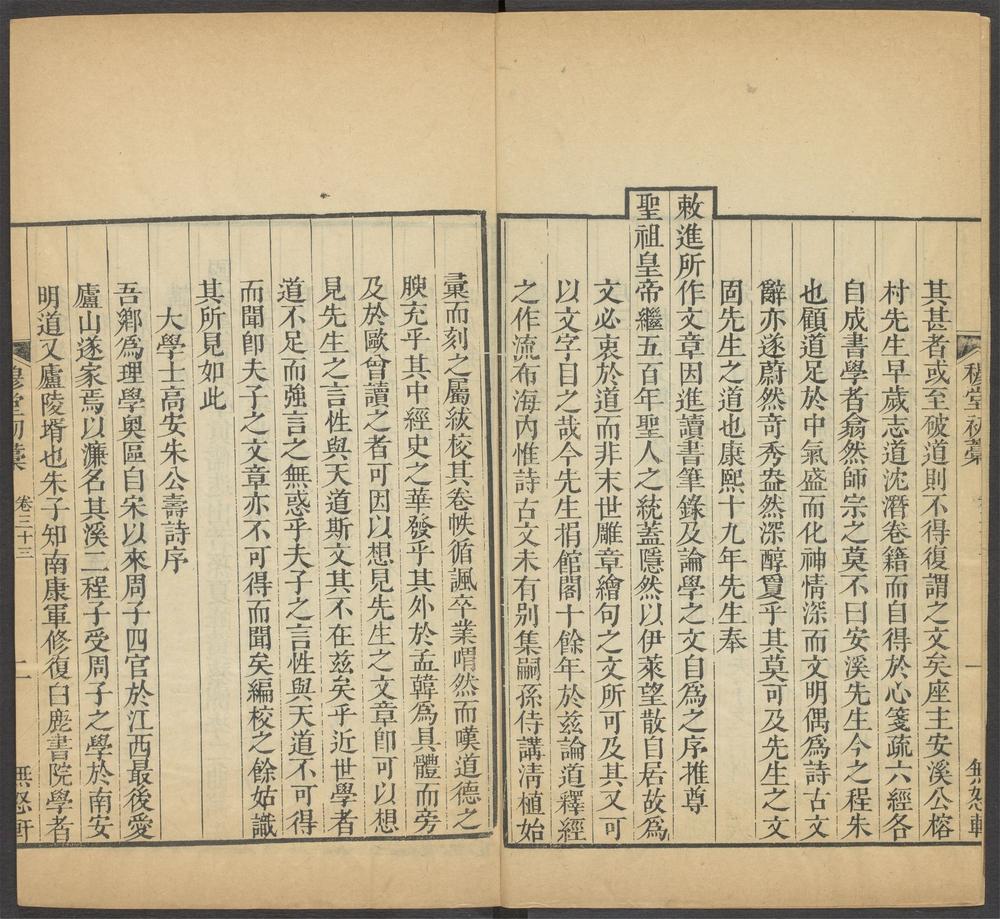 穆堂初藁
一
無怒軒
其甚者或至破道則不得復謂之文矣座主安溪公榕
村先生早歲志道沈潛卷籍而自得於心箋疏六經各
自成書學者翕然師宗之莫不曰安溪先生今之程朱
也顧道足於中氣盛而化神情深而文明偶爲詩古文
辭亦遂蔚然奇秀盎然深醇敻乎其莫可及先生之文
固先生之道也康熙十九年先生奉
敕進所作文章因進讀書筆錄及論學之文自爲之序推尊
聖祖皇帝繼五百年聖人之統蓋隱然以伊萊望散自居故爲
文必衷於道而非末世雕章繪句之文所可及其又可
以文字目之哉今先生捐館閣十餘年於兹論道釋經
之作流布海內惟詩古文未有別集嗣孫侍講淸植始
彙而刻之屬紱校其卷帙循諷卒業喟然而嘆道德之
腴充乎其中經史之華發乎其外於孟韓爲具體而旁
及於歐曾讀之者可因以想見先生之文章卽可以想
見先生之言性與天道斯文其不在兹矣乎近世學者
道不足而強言之無惑乎夫子之言性與天道不可得
而聞卽夫子之文章亦不可得而聞矣編校之餘姑識
其所見如此
大學士高安朱公壽詩序
吾鄉爲理學奧區自宋以來周子四官於江西最後愛
廬山遂家焉以濂名其溪二程子受周子之學於南安
明道又廬陵壻也朱子知南康軍修復白鹿書院學者
穆堂初藁
卷三十三
二
無怒軒